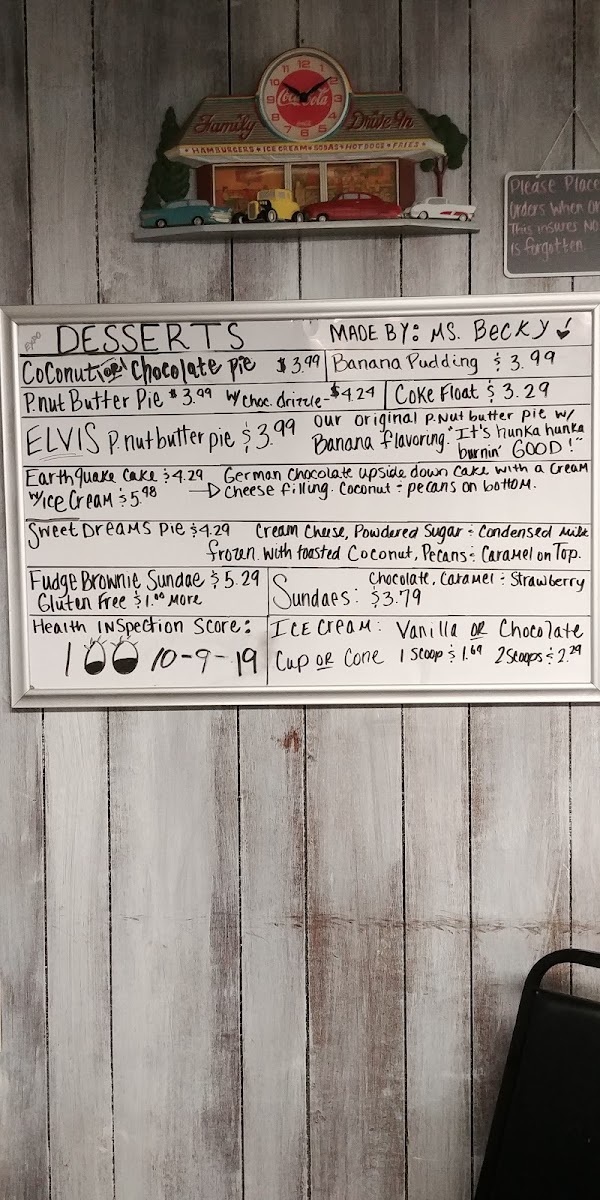 12
Coca-Cola
Family Drive In
HAMBURGERS • ICE CREAM • SODAS • HOT DOGS • FRIES
Please Place
Orders When
This insures NO
is forgotten.
EXPO
DESSERTS MADE BY: MS. BECKY
Coconut or Chocolate Pie $3.99 Banana Pudding $3.99
P.nut Butter Pie $3.99 w/choc. drizzle - $4.24 Coke Float $3.29
ELVIS p.nut butter pie $3.99 our original P.Nut butter pie w/
Banana flavoring. "It's hunka hunka
burnin' GOOD!"
Earthquake Cake $4.29 German Chocolate upside down cake with a cream
w/Ice Cream $5.98 → cheese filling. Coconut & pecans on bottom.
Sweet Dreams Pie $4.29 Cream Cheese, Powdered Sugar & Condensed Milk
frozen with toasted Coconut, Pecans & Caramel on Top.
Fudge Brownie Sundae $5.29
Gluten Free $1.00 More
Chocolate, Caramel & Strawberry
Sundaes: $3.79
Health Inspection Score:
100 10-9-19
ICE CREAM: Vanilla OR Chocolate
Cup OR Cone 1 Scoop $1.69 2 Scoops $2.29